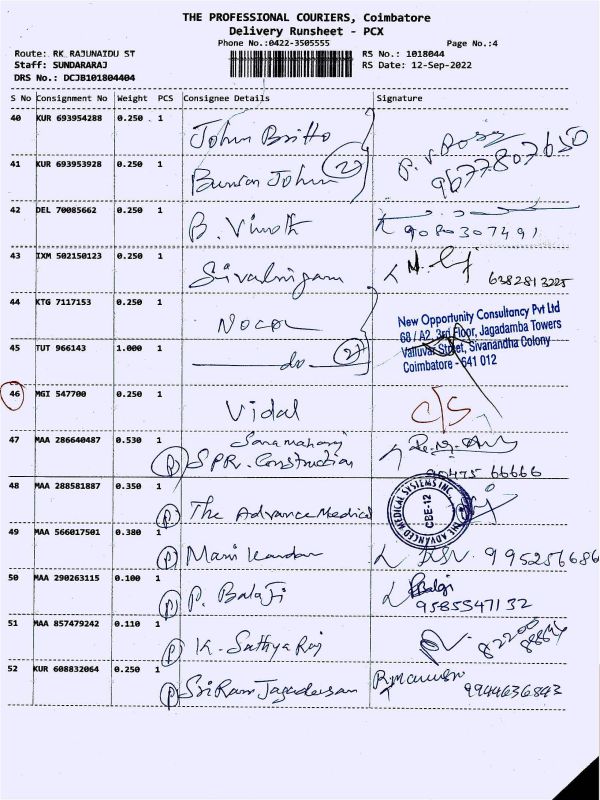 THE PROFESSIONAL COURIERS, Coimbatore
Delivery Runsheet - PCX
Phone No.:0422-3505555
Page No.:4
Route: RK RAJUNAIDU ST
RS No.: 1018044
Staff: SUNDARARAJ
RS Date: 12-Sep-2022
DRS No.: DCJB101804404
S No Consignment No Weight PCS Consignee Details Signature
40 KUR 693954288 0.250 1 John Britto
41 KUR 693953928 0.250 1 John 2
9677807650
42 DEL 70085662 0.250 1 B. Vinoth 9080307491
43 IXM 502150123 0.250 1 6382813225
44 KTG 7117153 0.250 1 Nocol
New Opportunity Consultancy Pvt Ltd
68 / A2, 3rd Floor, Jagadamba Towers
Valluvar Street, Sivanandha Colony
Coimbatore - 641 012
45 TUT 966143 1.000 1 do 2
46 MGI 547700 0.250 1 Vidal C/S
47 MAA 286640487 0.530 1
P SPR. Construction
90475 66666
48 MAA 288581887 0.350 1 P The Advance Medical
THE ADVANCED MEDICAL SYSTEMS INC
CBE-12
49 MAA 566017501 0.380 1 P Mani kandan 995256686
50 MAA 290263115 0.100 1 P P. Balaji Balgi
9585547132
51 MAA 857479242 0.110 1 P K. Sathya Raj 82200
88864
52 KUR 608832064 0.250 1 P Sri Ram Jagadeesan
9944636843